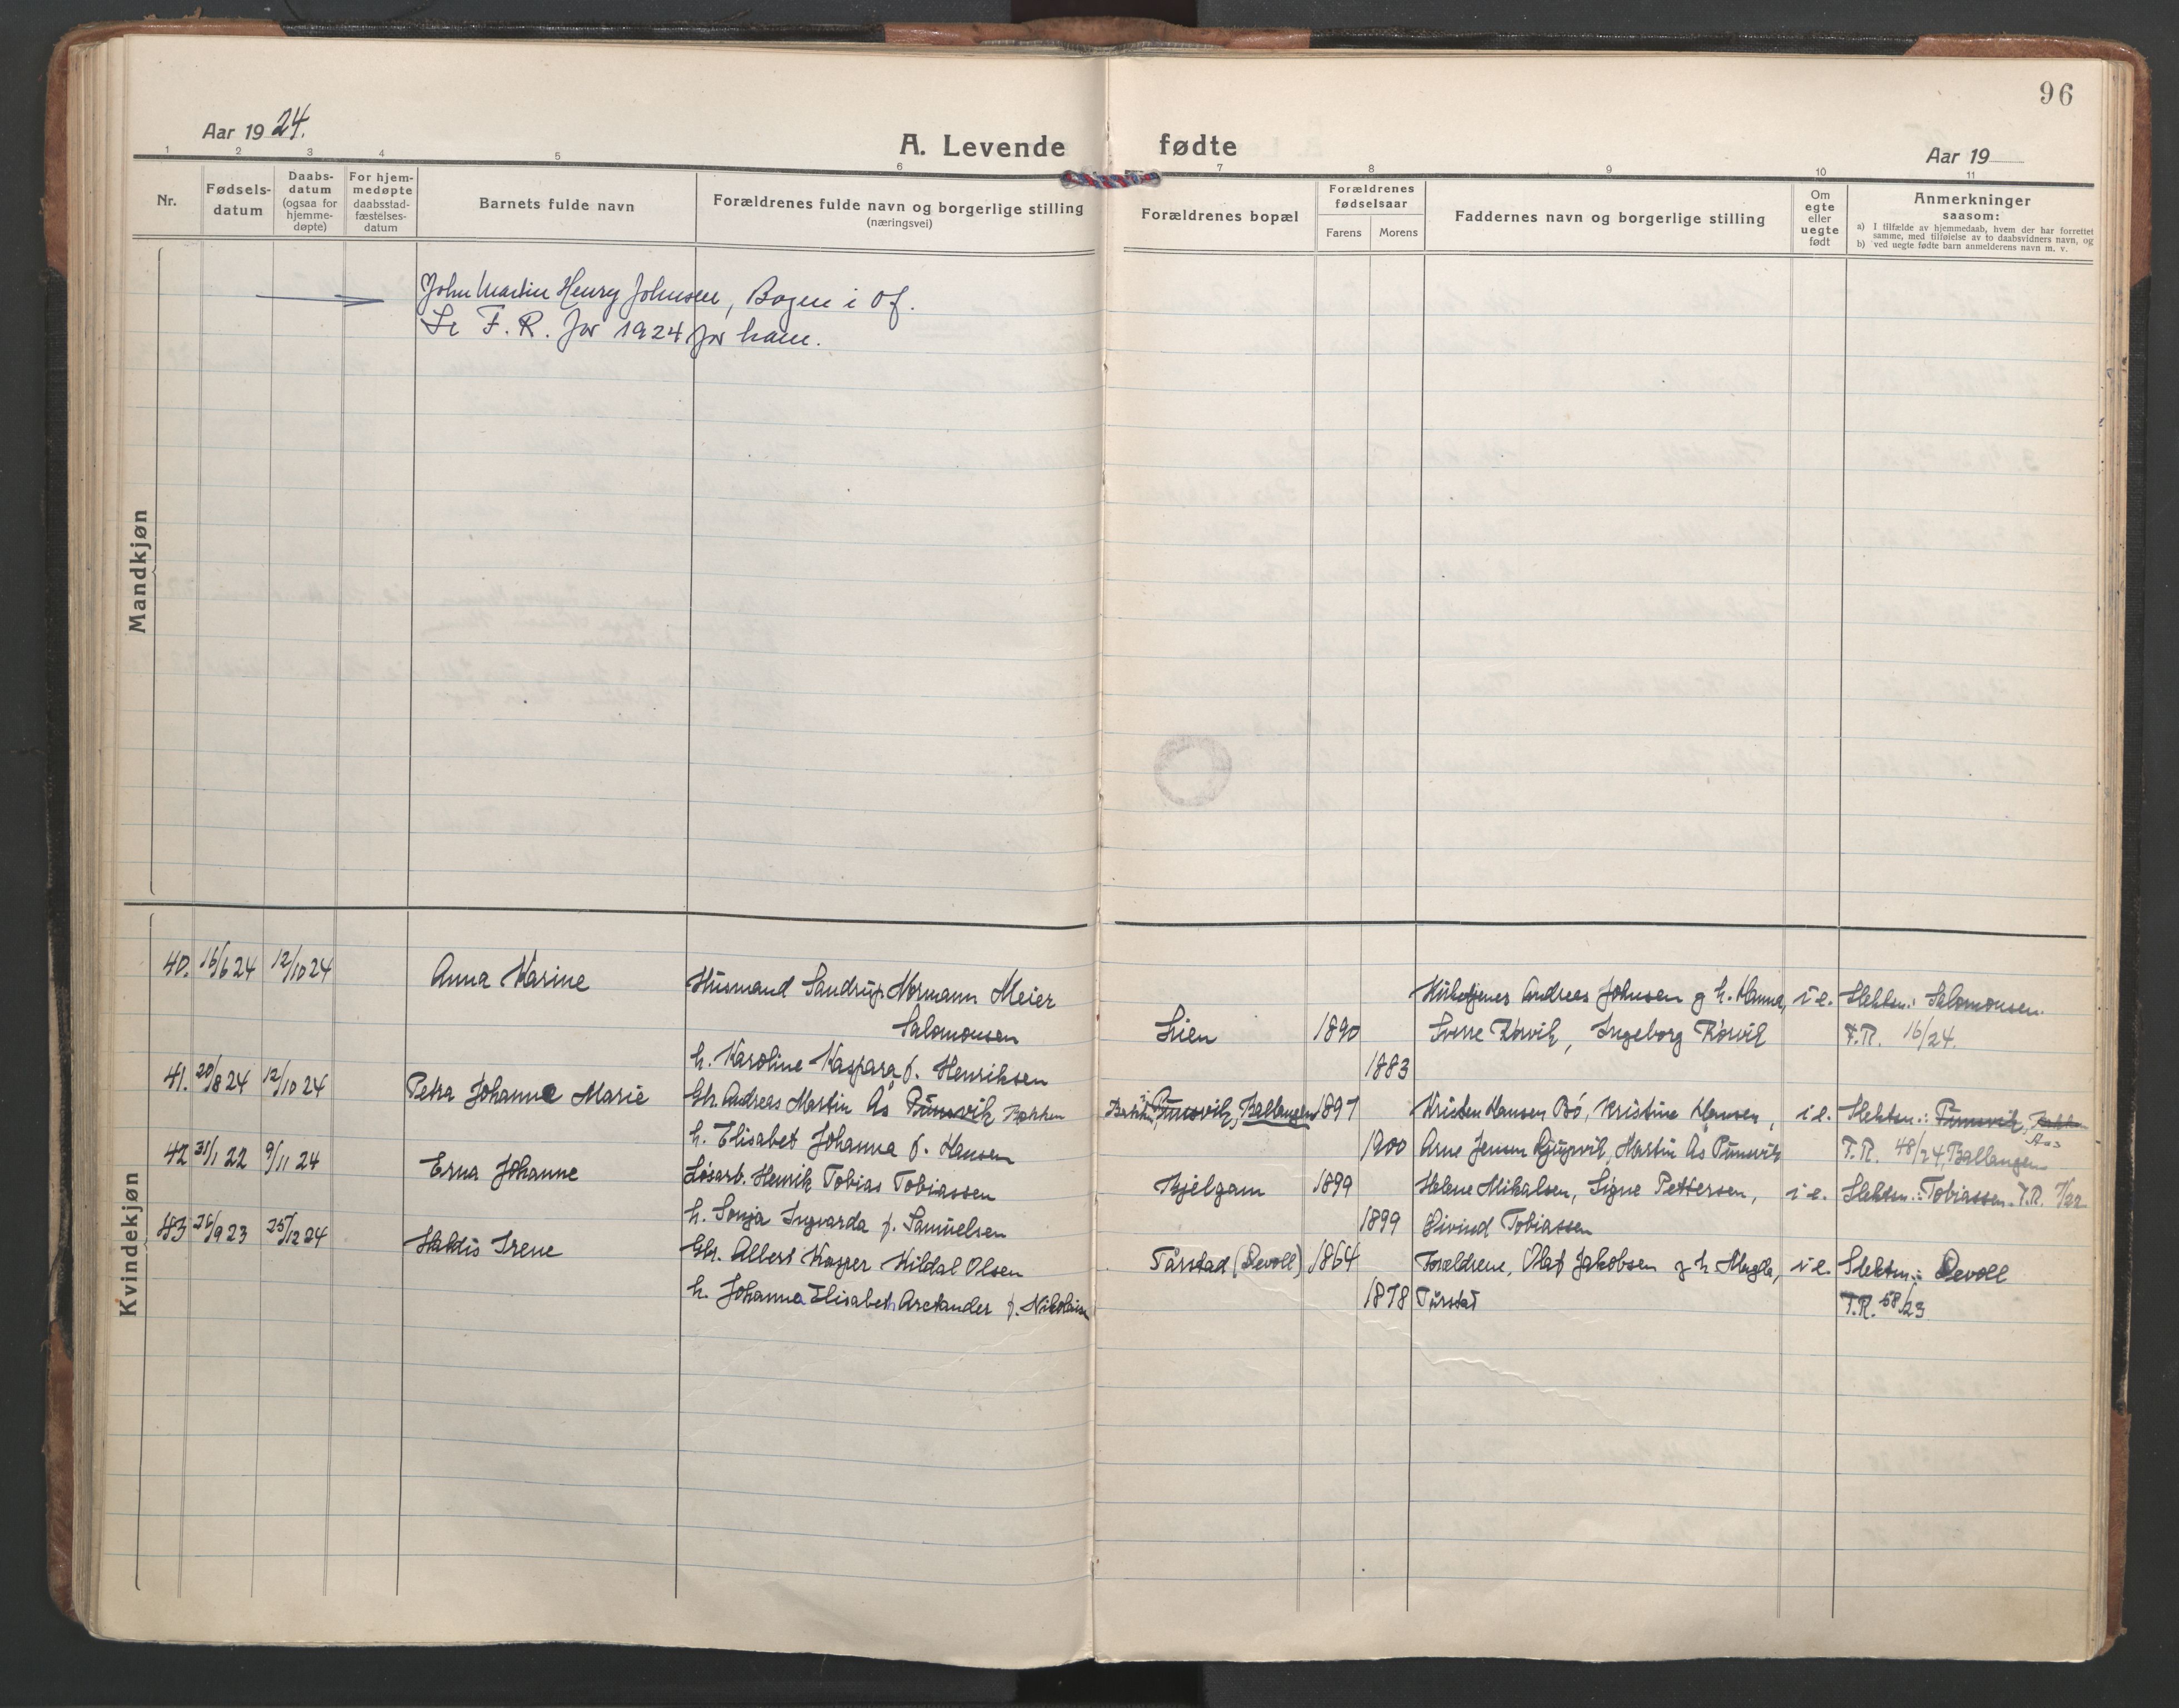 96
Aar 19 24.
A. Levende fødte
Aar 19
1 2 3 4 5 6 7 8 9 10 11
Nr.
Fødsels-
datum
Daabs-
datum
(ogsaa for
hjemme-
døpte)
For hjem-
medøpte
daabsstad-
fæstelses-
datum
Barnets fulde navn
Forældrenes fulde navn og borgerlige stilling
(næringsvei)
Forældrenes bopæl
Forældrenes
fødselsaar
Farens Morens
Faddernes navn og borgerlige stilling
Om
egte
eller
uegte
født
Anmerkninger
saasom:
a) I tilfælde av hjemmedaab, hvem der har forrettet
samme, med tilføielse av to daabsvidners navn, og
b) ved uegte fødte barn anmelderens navn m. v.
Mandkjøn
John Martin Henry Johnsen, Bogen i Of.
Se F. R. for 1924 for ham.
Kvindekjøn
40. 16/6 24 12/10 24 Anna Karine Husmand Sandrup Normann Meier
Salomonsen
h. Karoline Kaspara f. Henriksen
Lien 1890
1883
Andreas Johnsen g h. Hanna,
Sverre Korvik, Ingeborg Korvik
i e. Slektsn.: Salomonsen
F.R. 16/24.
41. 20/8 24 12/10 24 Petra Johanne Marie Gbr. Andreas Martin Ås Pünsvik Bakken
h. Elisabet Johanna f. Hansen
Bakken i Pünsvik, Ballangen 1897
1900
Kristen Hansen Bö, Kristine Hansen,
Arne Jensen Djupvik, Martin Ås Pünsvik
i e. Slektsn.: Pünsvik, Bakken
Aas
F.R. 48/24, Ballangen
42 31/1 22 9/11 24 Erna Johanne Løsarb. Henrik Tobias Tobiassen
h. Sonja Ingvarda f. Samuelsen
Kjelgam 1899
1899
Helene Mikalsen, Signe Pettersen,
Eivind Tobiassen
i e. Slektsn.: Tobiassen. F.R. 7/22
43 26/9 23 25/12 24 Haldis Irene Gbr. Albert Kasper Kildal Olsen
h. Johanna Elisabeth Arctander f. Nikolaisen
Tårstad (Devoll) 1864
1878
Forældrene, Olaf Jakobsen g h Magda,
Tårstad
i e. Slektsn.: Devoll
F.R. 58/23